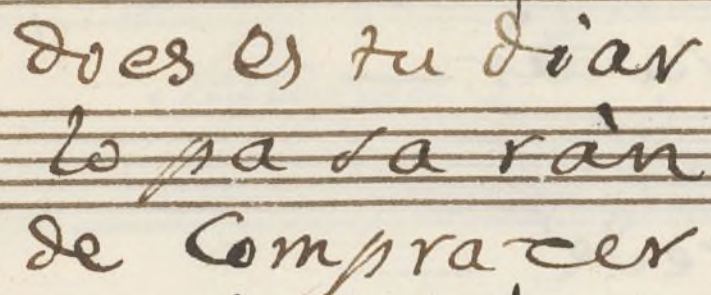 do es es tu diar
lo pa sa ràn
de Comprazer